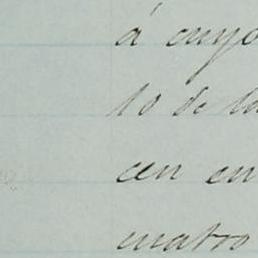 á cuyo
10 de la
cen en
cuatro